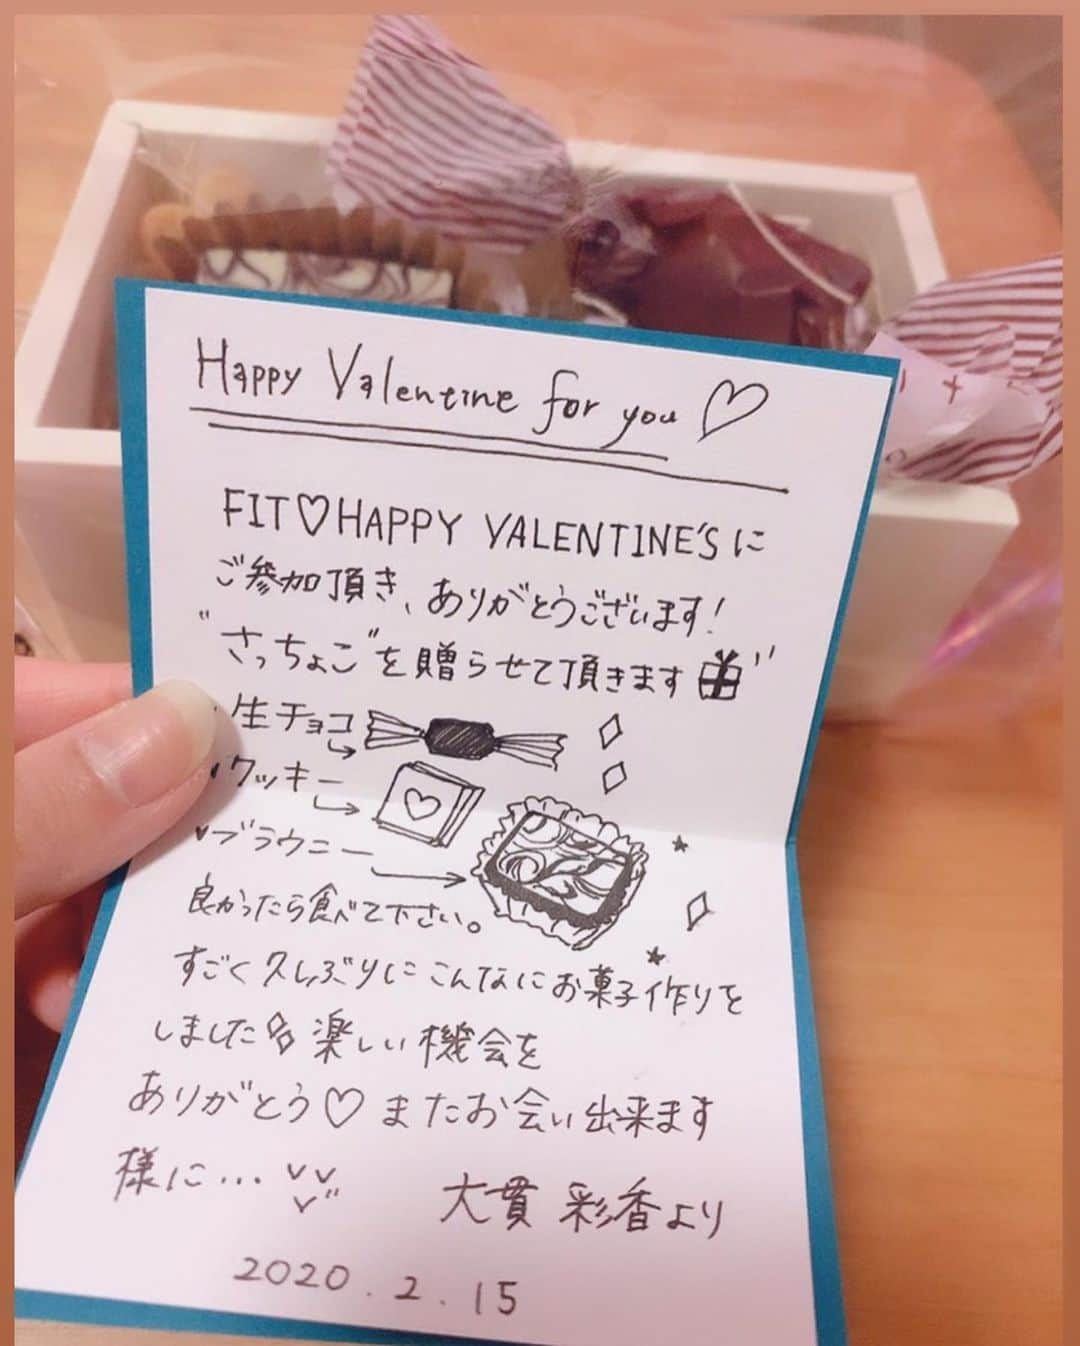 Happy Valentine for you ♡
FIT♡HAPPY VALENTINE'Sに
ご参加頂き、ありがとうございます!
"さっちょこ"を贈らせて頂きます
生チョコ
♥クッキー
♥ブラウニー
良かったら食べて下さい。
すごく久しぶりにこんなにお菓子作りを
しました 楽しい機会を
ありがとう♡またお会い出来ます
様に…
大貫 彩香より
2020.2.15